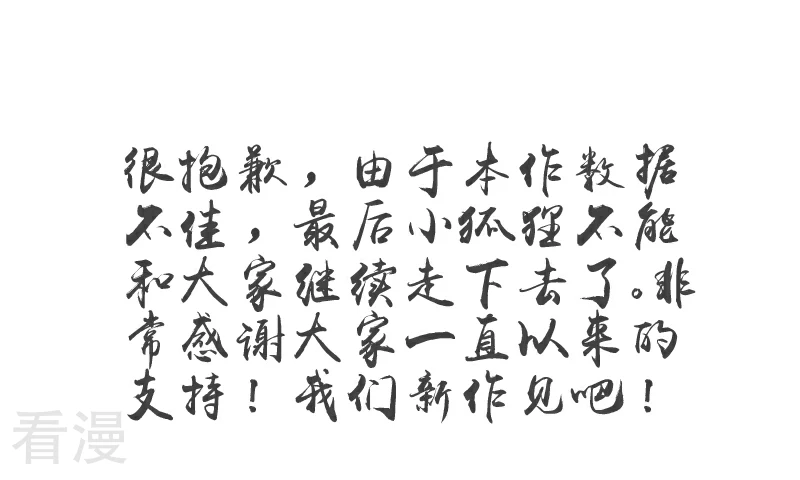 很抱歉，由于本作数据
不佳，最后小狐狸不能
和大家继续走下去了。非
常感谢大家一直以来的
支持！我们新作见吧！
看漫